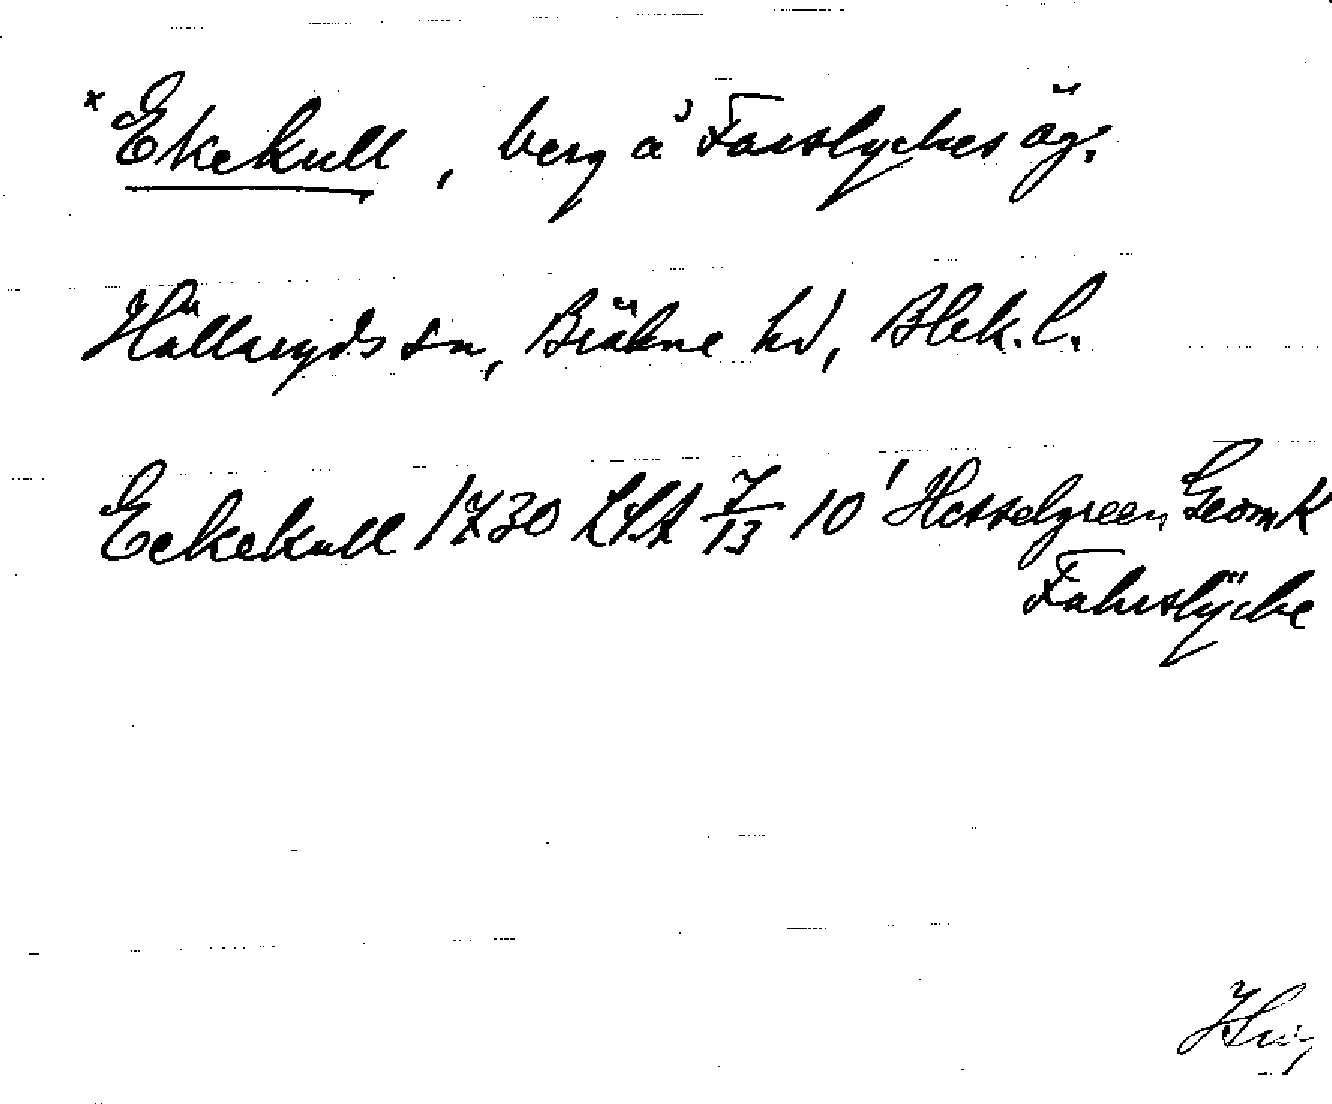 x Ekekull, berg å Farslyckes äg.
Hällaryds sn, Bräkne hd, Blek. l.
Eckekull 1730 LSA 7/13 10' Hesselgreen Geom K
Fahrslÿcke